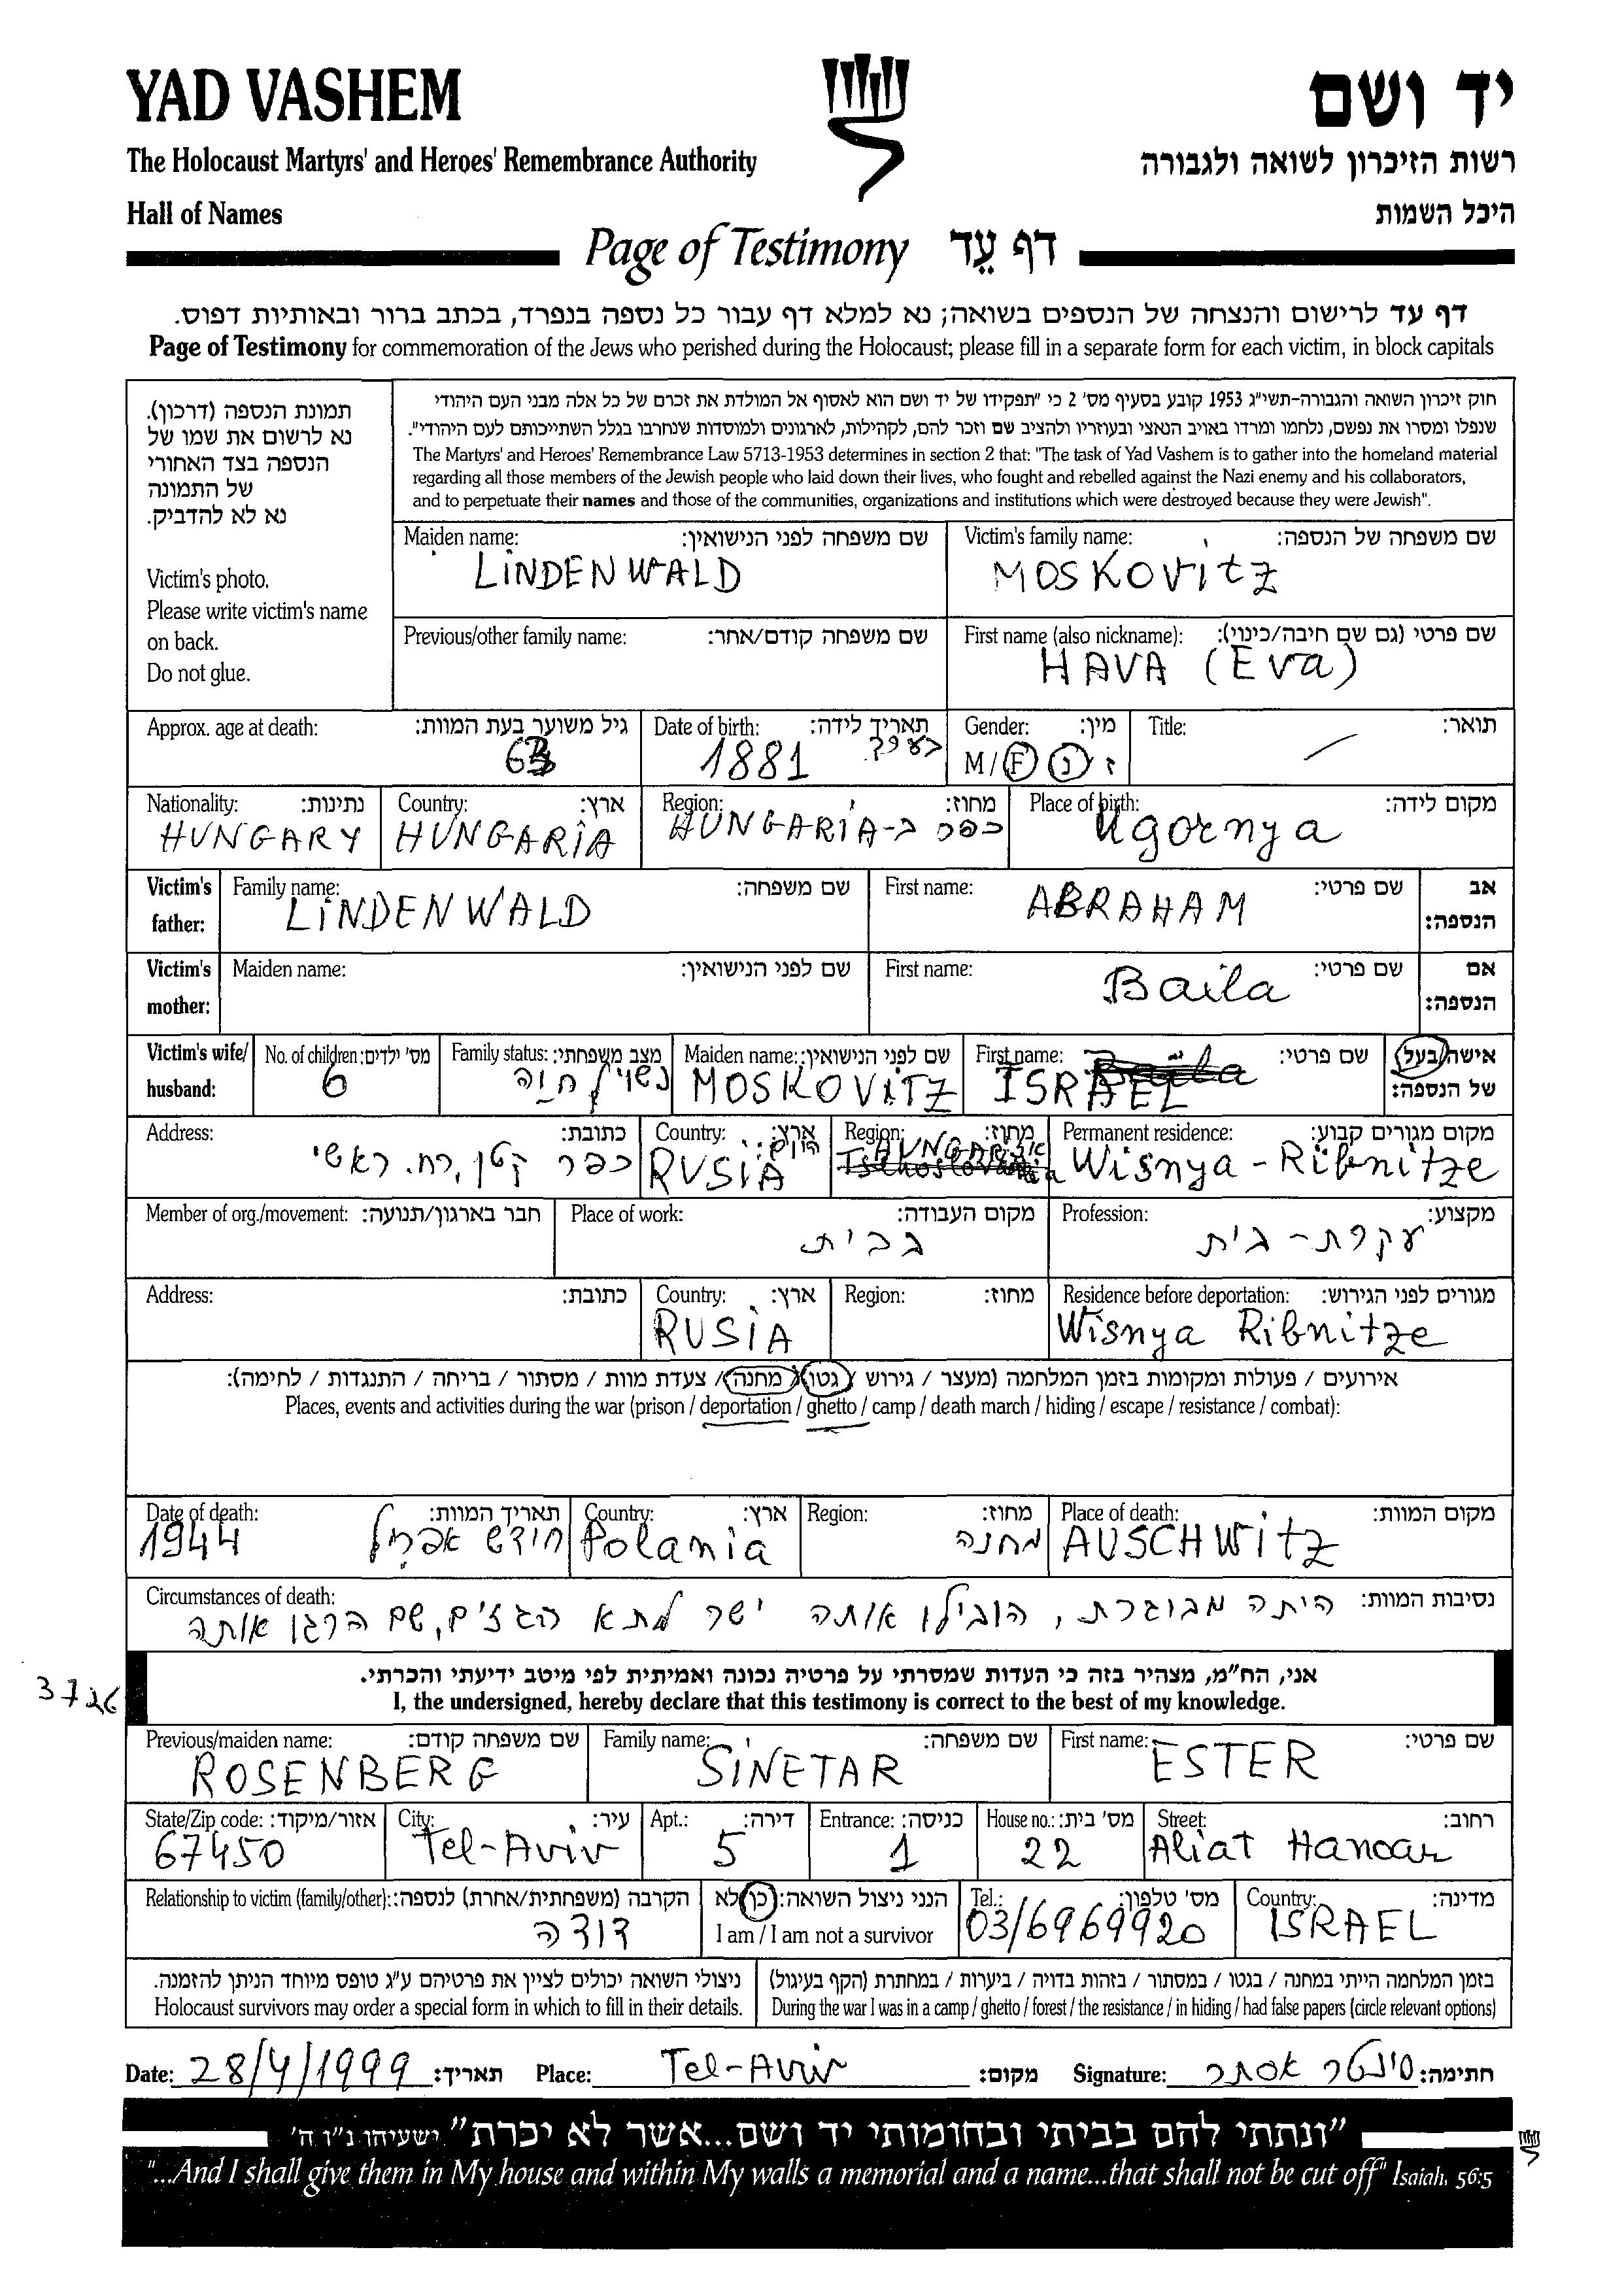 YAD VASHEM
יד ושם
The Holocaust Martyrs' and Heroes' Remembrance Authority
רשות הזיכרון לשואה ולגבורה
Hall of Names
היכל השמות
Page of Testimony דף עֵד
דף עד לרישום והנצחה של הנספים בשואה; נא למלא דף עבור כל נספה בנפרד, בכתב ברור ובאותיות דפוס.
Page of Testimony for commemoration of the Jews who perished during the Holocaust; please fill in a separate form for each victim, in block capitals
תמונת הנספה (דרכון).
נא לרשום את שמו של
הנספה בצד האחורי
של התמונה
נא לא להדביק.
Victim's photo.
Please write victim's name
on back.
Do not glue.
חוק זיכרון השואה והגבורה-תשי"ג 1953 קובע בסעיף מס' 2 כי "תפקידו של יד ושם הוא לאסוף אל המולדת את זכרם של כל אלה מבני העם היהודי
שנפלו ומסרו את נפשם, נלחמו ומרדו באויב הנאצי ובעוזריו ולהציב שם וזכר להם, לקהילות, לארגונים ולמוסדות שנחרבו בגלל השתייכותם לעם היהודי".
The Martyrs' and Heroes' Remembrance Law 5713-1953 determines in section 2 that: "The task of Yad Vashem is to gather into the homeland material
regarding all those members of the Jewish people who laid down their lives, who fought and rebelled against the Nazi enemy and his collaborators,
and to perpetuate their names and those of the communities, organizations and institutions which were destroyed because they were Jewish".
Maiden name: שם משפחה לפני הנישואין:
LINDENWALD
Victim's family name: שם משפחה של הנספה:
MOSKOVITZ
Previous/other family name: שם משפחה קודם/אחר:
First name (also nickname): שם פרטי (גם שם חיבה/כינוי):
HAVA (Eva)
Approx. age at death: גיל משוער בעת המוות:
63
Date of birth: תאריך לידה:
1881 בערך
Gender: מין:
M / F נ / ז
Title: תואר:
Nationality: נתינות:
HUNGARY
Country: ארץ:
HUNGARIA
Region: מחוז:
כפר ב-HUNGARIA
Place of birth: מקום לידה:
Ugornya
Victim's father: Family name: שם משפחה:
LINDENWALD
First name: שם פרטי: אב הנספה:
ABRAHAM
Victim's mother: Maiden name: שם לפני הנישואין:
First name: שם פרטי: אם הנספה:
Baila
Victim's wife/ husband: No. of children: מס' ילדים:
6
Family status: מצב משפחתי:
נשוי/ חיה
Maiden name: שם לפני הנישואין:
MOSKOVITZ
First name: שם פרטי: אישה/בעל של הנספה:
ISRAEL
Address: כתובת:
כפר קטן, רח. ראשי
Country: ארץ:
היום:
RUSIA
Region: מחוז:
HUNGARIA
Permanent residence: מקום מגורים קבוע:
Wisnya-Ribnitze
Member of org./movement: חבר בארגון/תנועה:
Place of work: מקום העבודה:
בבית
Profession: מקצוע:
עקרת-בית
Address: כתובת:
Country: ארץ:
RUSIA
Region: מחוז:
Residence before deportation: מגורים לפני הגירוש:
Wisnya Ribnitze
אירועים / פעולות ומקומות בזמן המלחמה (מעצר / גירוש / גטו / מחנה / צעדת מוות / מסתור / בריחה / התנגדות / לחימה):
Places, events and activities during the war (prison / deportation / ghetto / camp / death march / hiding / escape / resistance / combat):
Date of death: תאריך המוות:
1944 חודש אפריל
Country: ארץ:
Polania
Region: מחוז:
מחנה
Place of death: מקום המוות:
AUSCHWITZ
Circumstances of death: נסיבות המוות:
היתה מבוגרת, הובילו אותה ישר לתא הגזים, שם הרגו אותה
3726
אני, הח"מ, מצהיר בזה כי העדות שמסרתי על פרטיה נכונה ואמיתית לפי מיטב ידיעתי והכרתי.
I, the undersigned, hereby declare that this testimony is correct to the best of my knowledge.
Previous/maiden name: שם משפחה קודם:
ROSENBERG
Family name: שם משפחה:
SINETAR
First name: שם פרטי:
ESTER
State/Zip code: אזור/מיקוד:
67450
City: עיר:
Tel-Aviv
Apt.: דירה:
5
Entrance: כניסה:
1
House no.: מס' בית:
22
Street: רחוב:
Aliat Hanoar
Relationship to victim (family/other): הקרבה (משפחתית/אחרת) לנספה:
דודה
הנני ניצול השואה: כן לא
I am / I am not a survivor
Tel.: מס' טלפון:
03/6969920
Country: מדינה:
ISRAEL
ניצולי השואה יכולים לציין את פרטיהם ע"ג טופס מיוחד הניתן להזמנה.
Holocaust survivors may order a special form in which to fill in their details.
בזמן המלחמה הייתי במחנה / בגטו / במסתור / בזהות בדויה / ביערות / במחתרת (הקף בעיגול)
During the war I was in a camp / ghetto / forest / the resistance / in hiding / had false papers (circle relevant options)
Date: 28/4/1999 תאריך: Place: Tel-Aviv מקום: Signature: סינטר אסתר חתימה:
"ונתתי להם בביתי ובחומותי יד ושם...אשר לא יכרת" ישעיהו נ"ו ה'
"...And I shall give them in My house and within My walls a memorial and a name...that shall not be cut off" Isaiah, 56:5